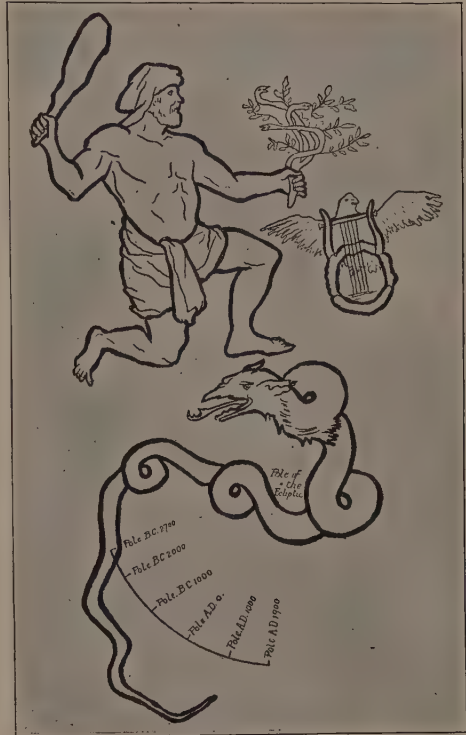 Pole of
the
Ecliptic
Pole B.C. 2700
Pole B.C 2000
Pole. B.C 1000
Pole A.D. 0.
Pole A.D. 1000
Pole A.D 1900